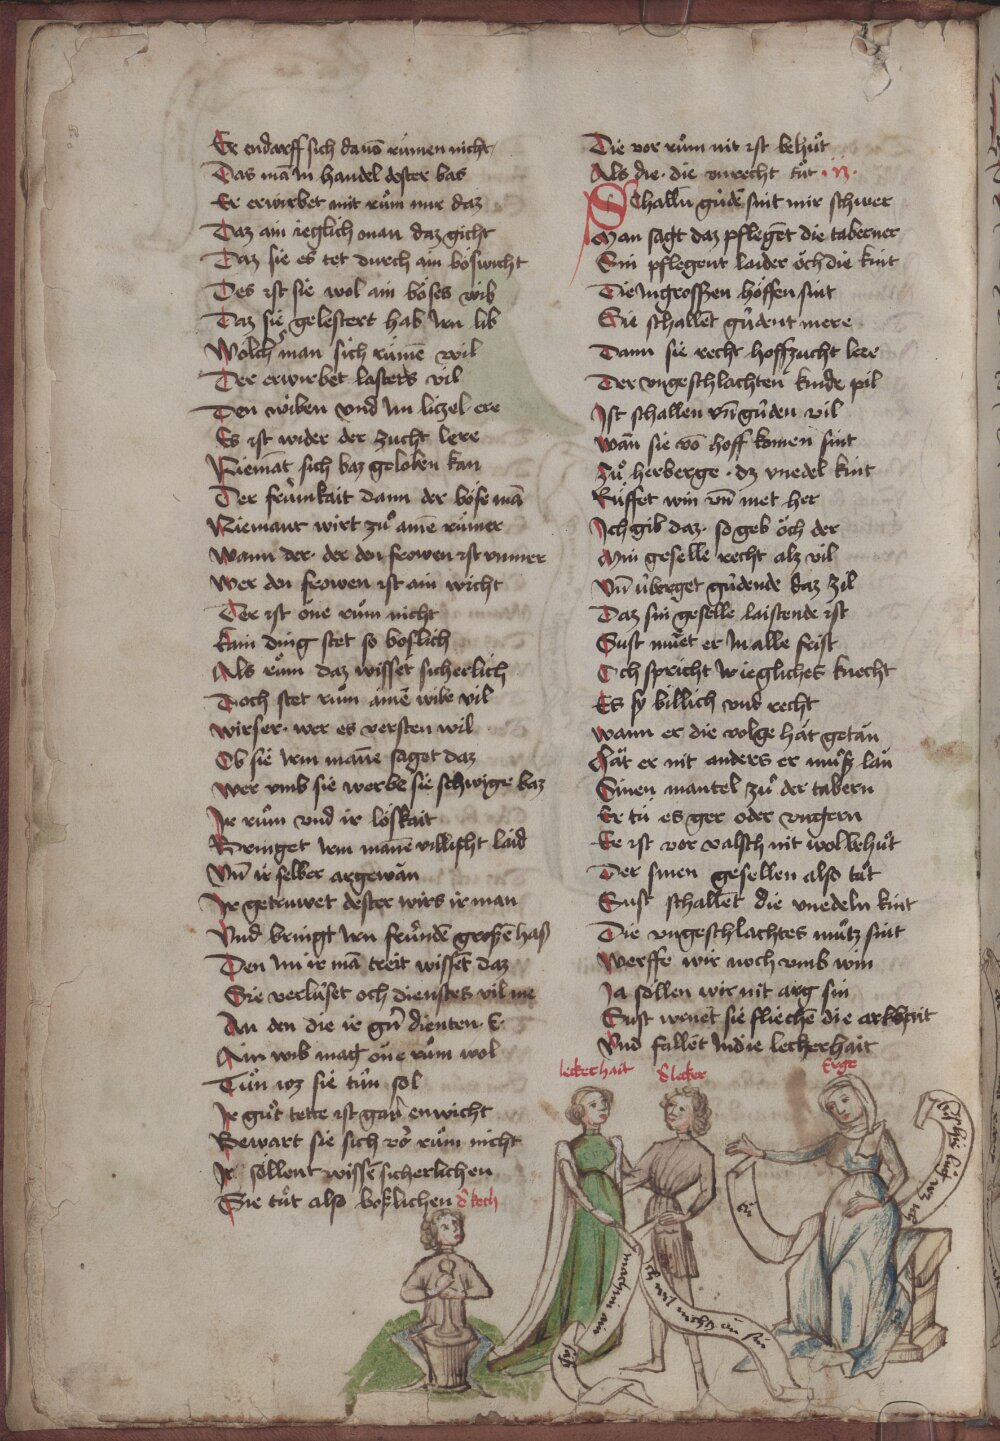 Er endarff sich davō rümen nicht
Das mā in handel dester bas
Er erwirbet mit rům nur daz
Daz ain ieglich man daz gicht
Daz sie es tet durch ain böswicht
Des ist sie wol ain böses wib
Daz sie gelestert hab irn lib
Wölch man sich rümē wil
Der erwirbet lasters vil
Den wiben vnd im lüzel ere
Es ist wider der zucht lere
Niemāt sich baz geloben kan
Der frümkait dann der böse mā
Niemant wirt zů ainē rümer
Wann der der den frowen ist vnmer
Wer den frowen ist ain wicht
Der ist öne rům nicht
Kain ding stet so boslich
Als rům daz wisset sicherlich
Doch stet rům ainē wibe vil
wirser wer es versten wil
Ob sie irm mañe saget daz
wer vmb sie werbe sie schwige baz
Ir rům vnd ir löskait
Bringet irm mañe villicht laid
Vn̄ ir selber argewän
Ir getruwet dester wirs ir man
Vnd bringt irn fründē grossē hass
Den im ir mā treit wissēt daz
Sie verlüset och dienstes vil me
An den die ir gůt dienten E
Ain wib mag öne rům wol
Tůn waz sie tůn sol
Ir gůt tette ist gar enwicht
Bewart sie sich vor rům nicht
Ir söllent wissē sicherlichen
Sie tůt also boslichen
d koch
Die vor rům nit ist behůt
Als die die vnrecht tůt
Schalln̄ güdē sint mir schwer
Man sagt daz pflegēt die taberner
Sin pflegent laider öch die kint
Die in grossen höffen sint
Sie schallēt gůdent mere
Dann sie recht hoffzucht lere
Der vngeschlachten kinde spil
Ist schallen vn̄ gůden vil
wān sie vō hoff komen sint
Zů herberge dz vnedel kint
Rüffet win vn̄ met her
Ich gib daz so geb öch der
Min geselle recht alz vil
Vn̄ überget güdende daz zil
Daz sin geselle laistende ist
Sust müet er in alle frist
Och spricht ir iegliches knecht
Es sy billich vnd recht
wann er die volge hät getän
Hät er nit anders er můss län
Sinen mantel zů der tabern
Er tü es ger oder vngern
Er ist vor valsch nit wol behůt
Der sinen gesellen also tůt
Sust schallēt die vnedeln kint
Die vngeschlachtes můtz sint
Werffe wir noch vmb win
Ja söllen wir nit arg sin
Sust wenēt sie fliechē die arkhait
Vnd fallēt in die leckerhait
leckerhait
d lecker
Erge